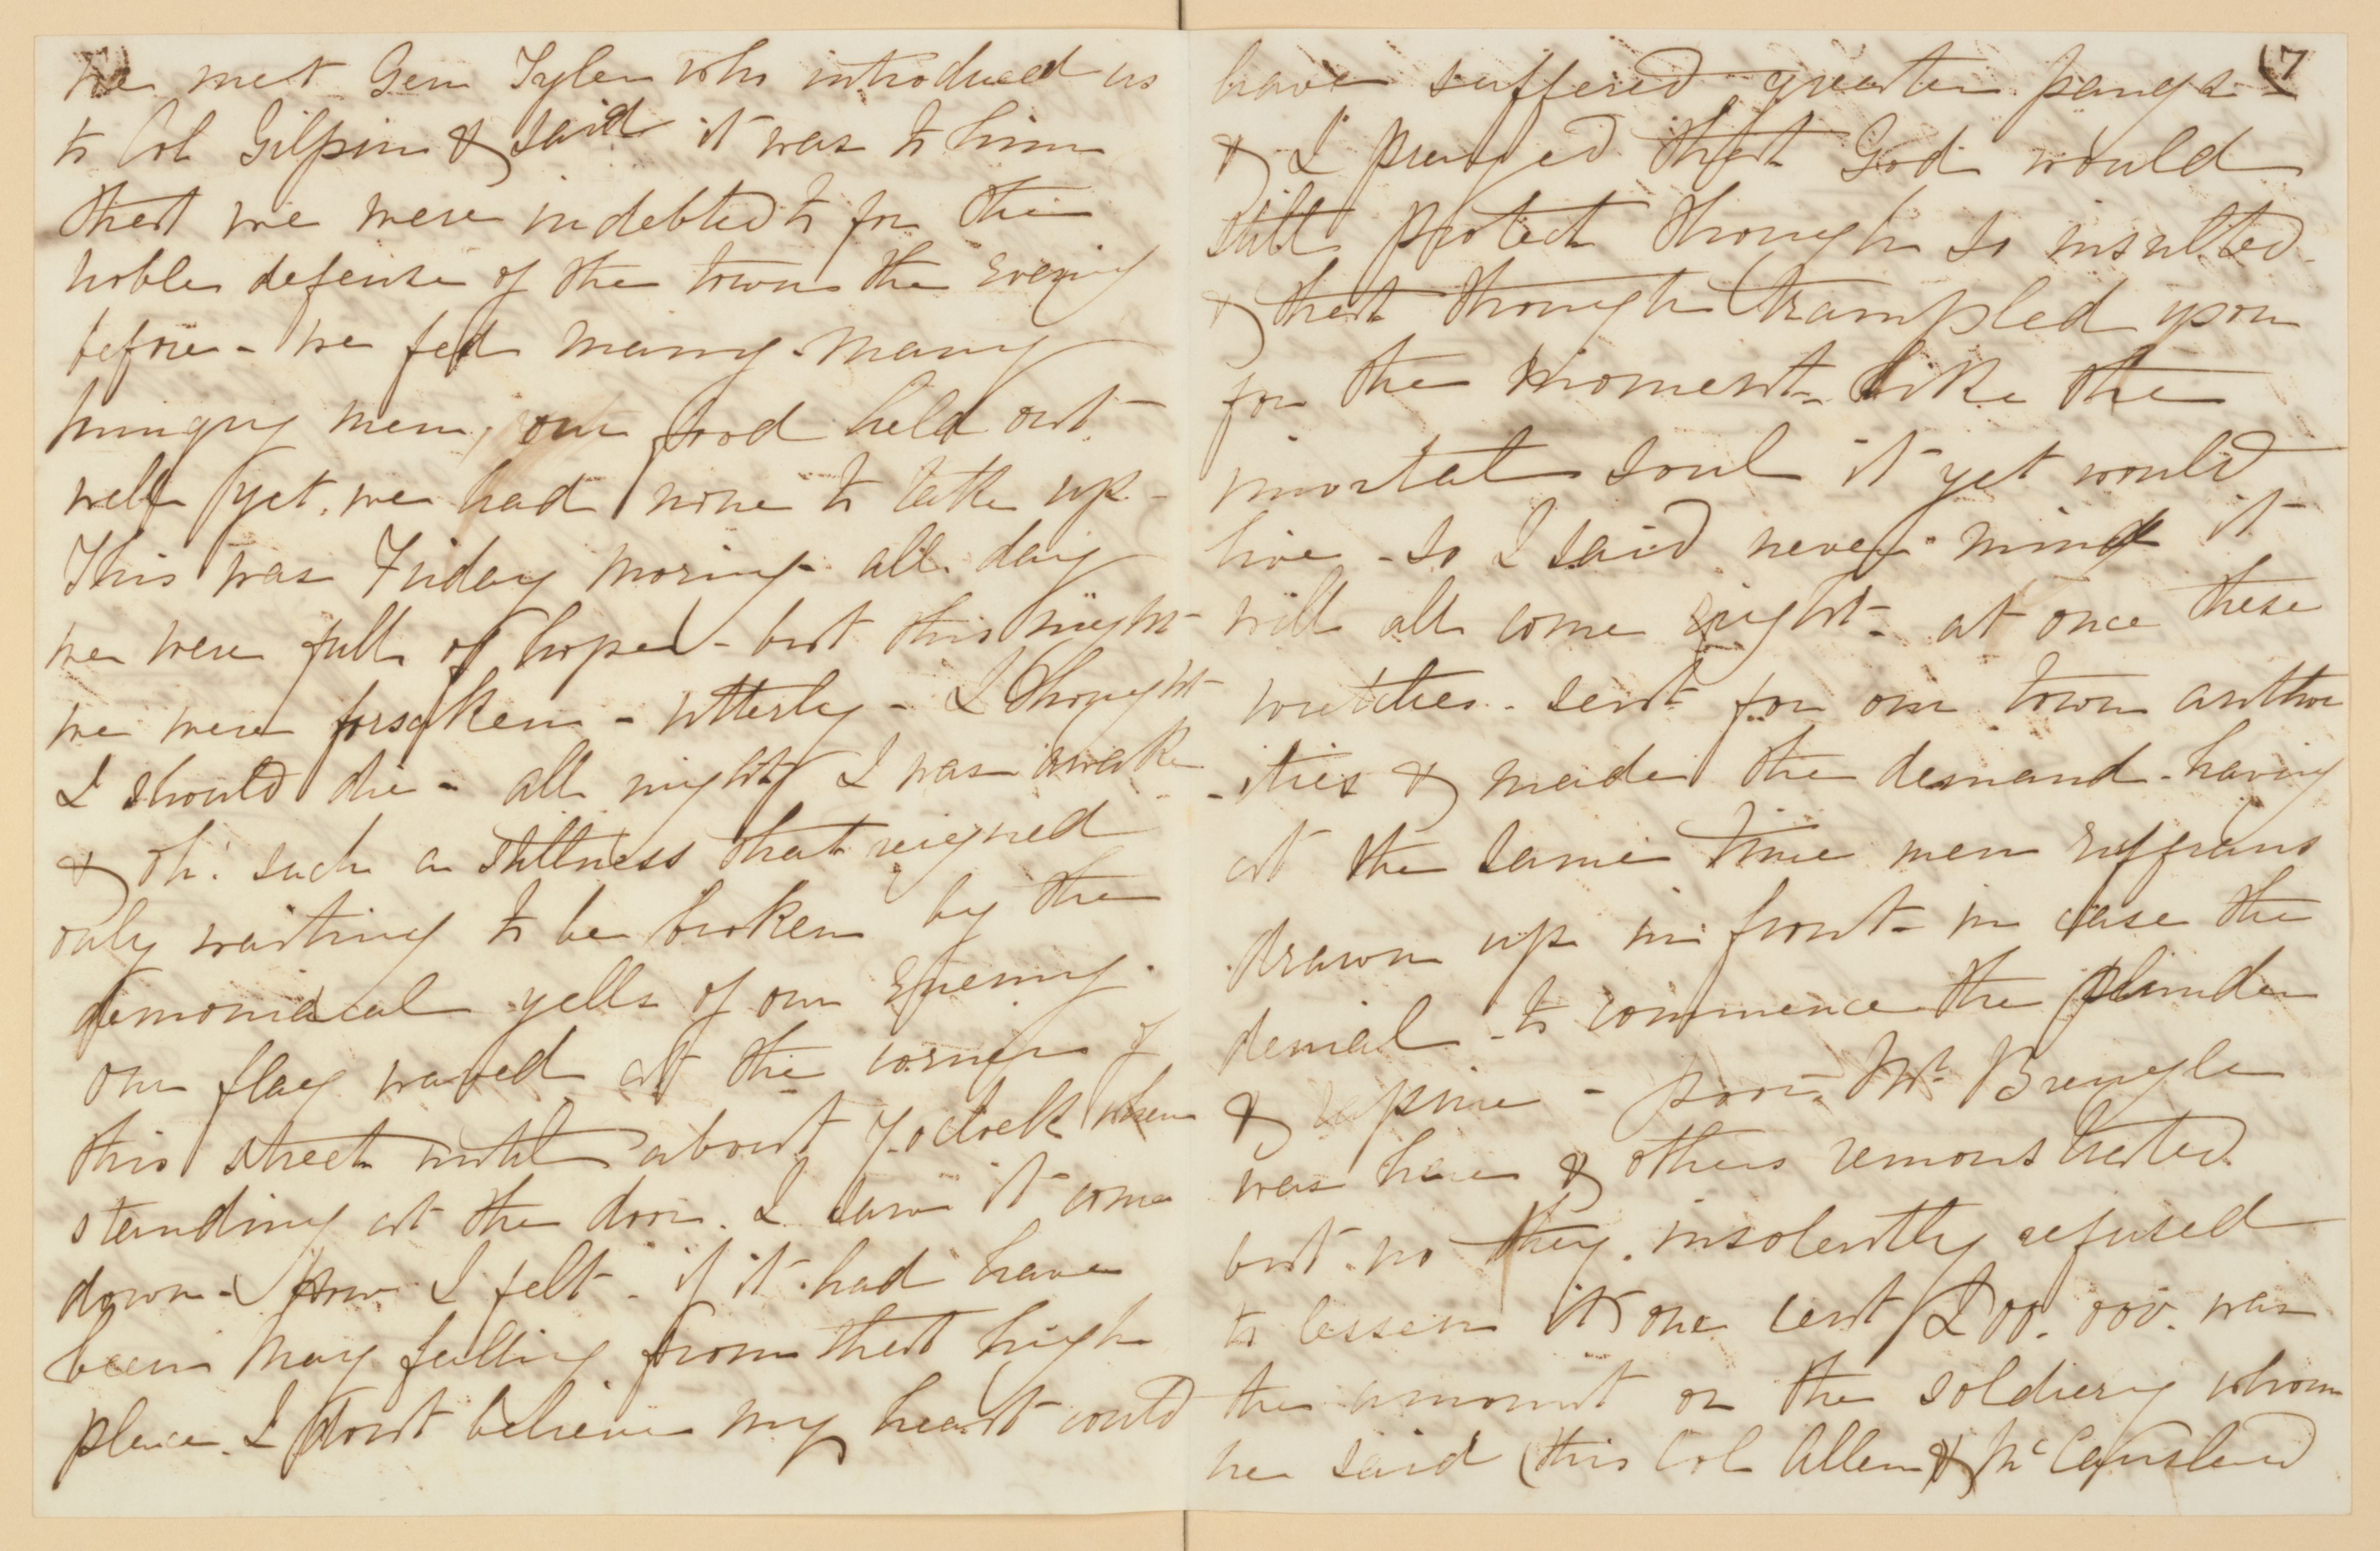 we met Gen Tyler who introduced us
to Col Gilpin & said it was to him
that we were indebted to for the
noble defense of the town the evening
before - we fed many many
hungry men, our food held out
well yet. we had none to take up -
This was Friday morning - all day
we were full of hope - but this night
we were forsaken - utterly - I thought
I should die - all night I was awake
& oh! such a stillness that reigned
only waiting to be broken by the
demoniacal yells of our enemy.
our flag waved at the corner of
this street until about 7 oclock when
standing at the door. I saw it come
down - how I felt - if it had have
been May falling from that high
place. I dont believe my heart could
(7
have suffered greater pangs -
& I prayed that God would
still protect though so insulted
& that though trampled upon
for the moment - like the
imortal soul it yet would
live - so I said never mind it
will all come right - at once these
wretches - sent for our town author
-ities & made the demand - having
at the same time men ruffians
drawn up in front - in case the
denial - to commence the plunder
& rapine - poor Mr Brengle
was here & others remonstrated
but no they insolently refused
to lessen it one cent 200.000. was
the amount or the soldiery whom
he said (this Col Allen & McCausland